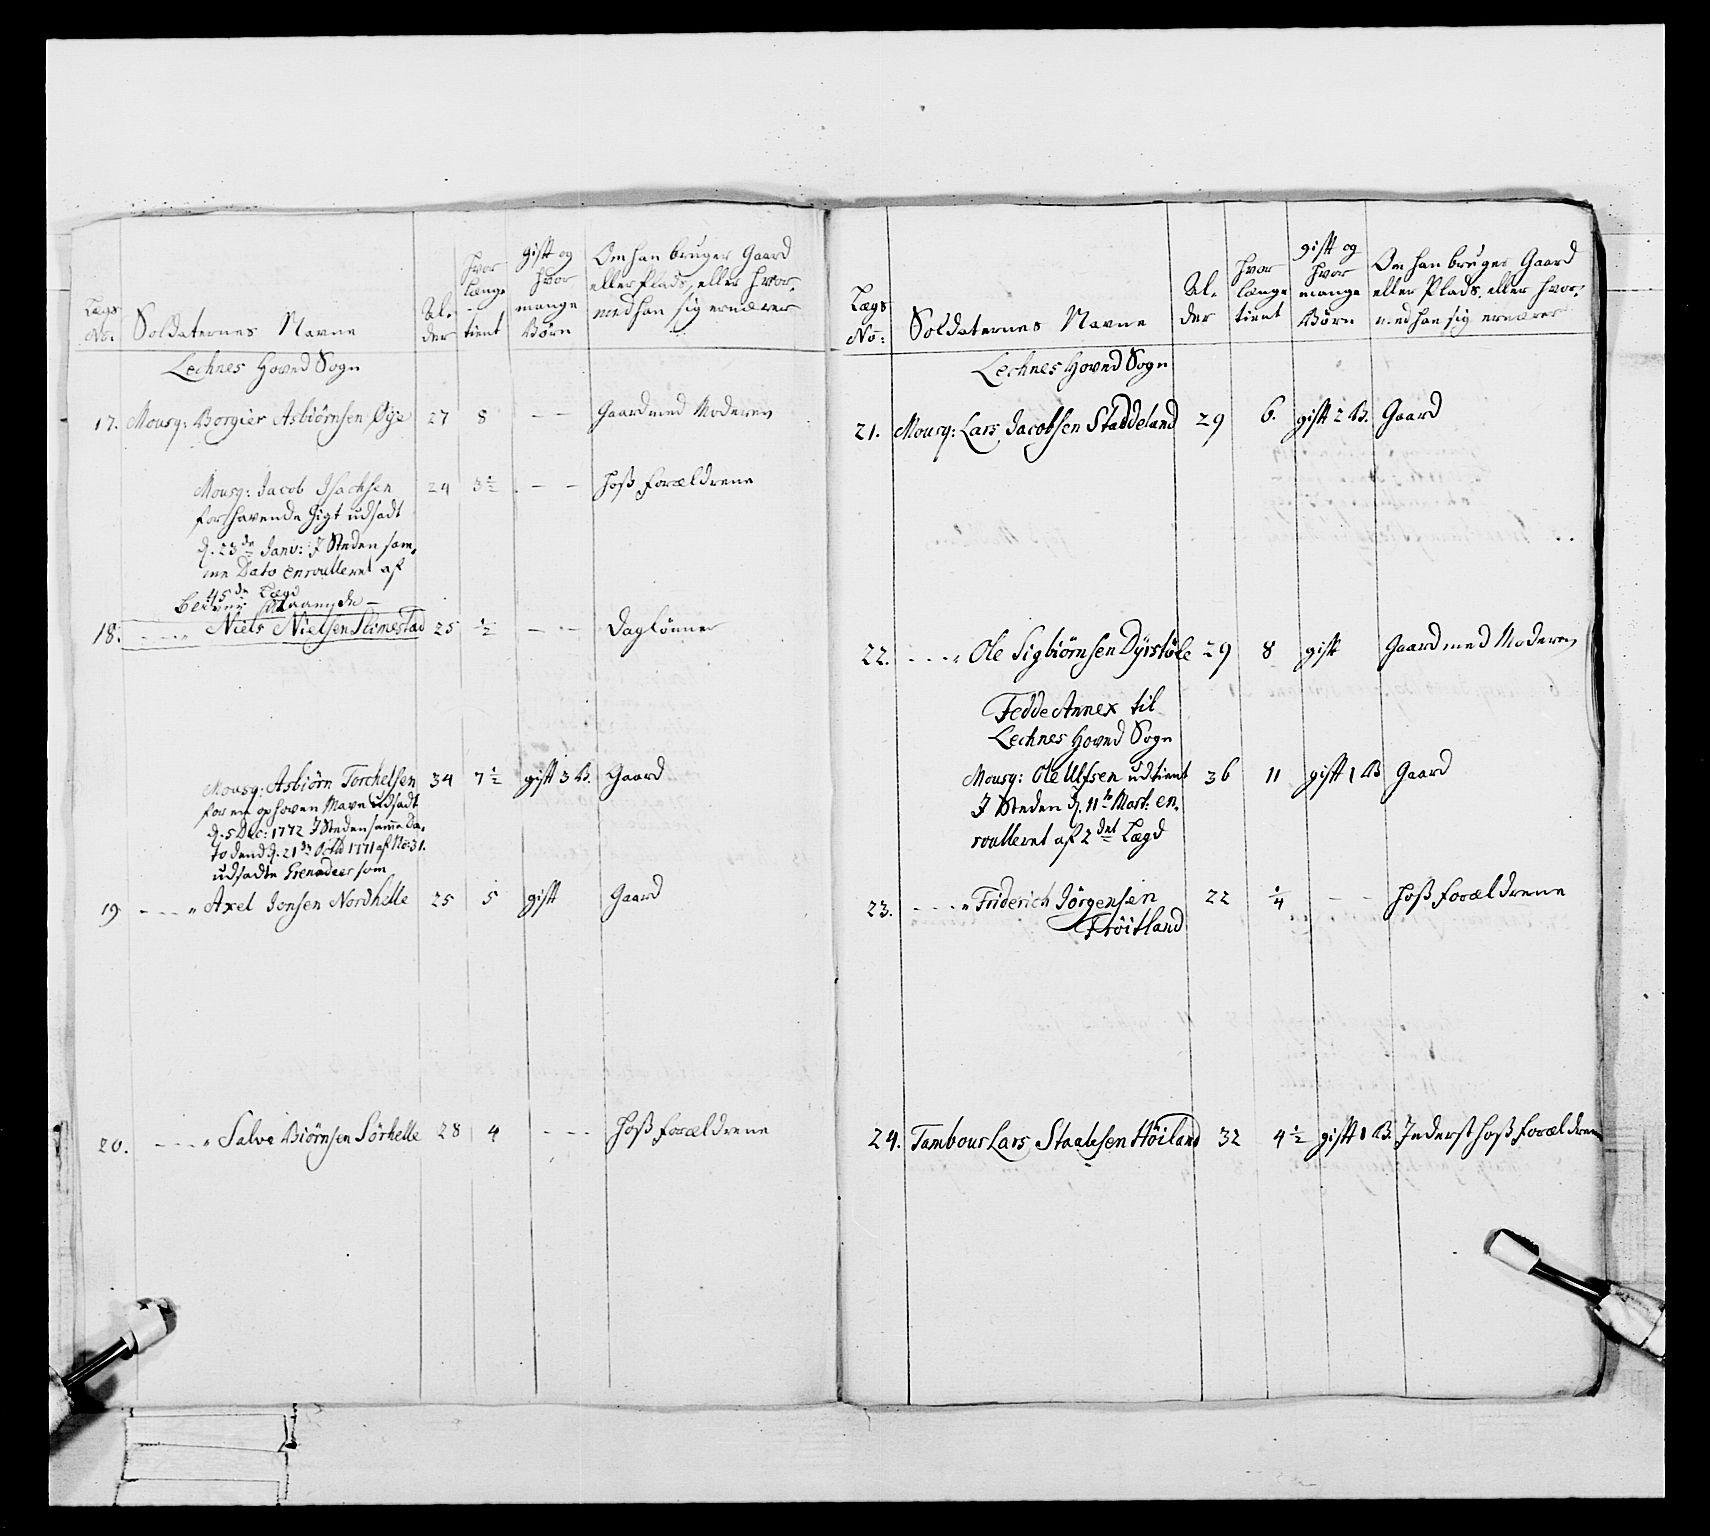 Lægs No: Soldaternes Navne Al- der hvor længe tient gift og hvor mange Børn Om han bruger Gaard eller Plads, eller hvor- med han sig ernærer
Lechnes Hoved Sogn
17. Mousq: Borgier Asbiörnsen Öÿe 27 8 – – Gaard med Moderen
Mousq: Jacob Isachsen 24 3½ – – hoß forældrene
for havende Gigt udsadt
d. 23de Janv: I Steden sam-
me Dato enroulleret af
45de Lægd
18. – – – „ Niels Nielsen Slimestad 25 ½ – – Daglönner
Mousq: Asbiörn Torchelsen 34 7½ gift 3 B. Gaard
for en ophoven Mave udsadt
d. 5 Dec: 1772 I Steden samme Da-
to dend d. 21de Octb 1771 af No: 31.
udsadte Grenadeer som
19. – – – „ Axel Jonsen Nordhelle 25 5 gift Gaard
20. – – – „ Salve Biörnsen Sörhelle 28 4 – – – hoß forældrene
Lægs No: Soldaternes Navne Al- der hvor længe tient gift og hvor mange Börn Om han bruger Gaard eller Plads, eller hvor- med han sig ernærer
Lechnes Hoved Sogn
21. Mousq: Lars Jacobsen Staddeland 29 6. gift 2 B. Gaard
22. – – – „ Ole Sigbiörnsen Dÿrstöle 29 8 gift Gaard med Moderen
Fedde Annex til
Lechnes Hoved Sogn
Mousq: Ole Ulfsen udtient 36 11 gift 1 B Gaard
I Steden d. 11te Mart: en-
roulleret af 2det Lægd
23. – – – „ Friderich Jörgensen 22 ¼ – – hoß forældrene
Fröitland
24. Tambour Lars Staalesen Höiland 32 4½ gift 1 B. Inderst hoß forældrene